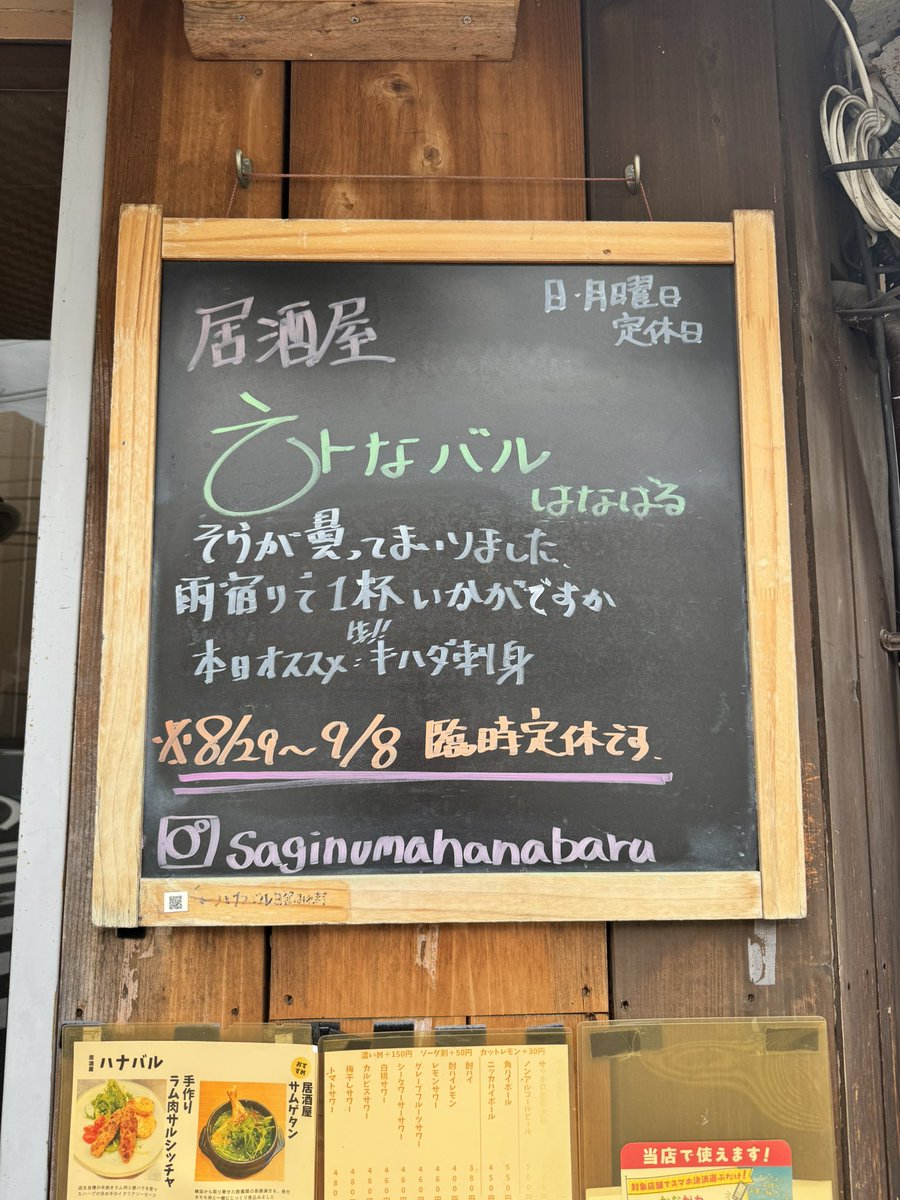 日・月曜日
定休日
居酒屋
ハナバル
はなばる
そらが曇ってまいりました、
雨宿りで1杯いかがですか
生!!
本日オススメ:キハダ刺身
※8/29〜9/8 臨時定休です.
saginumahanabaru
居酒屋 ハナバル
手作り
ラム肉サルシッチャ
おすすめ
居酒屋
サムゲタン
濃いめ+150円 ソーダ割+50円 カットレモン+30円
ノンアルコールビール
角ハイボール
ニッカハイボール
酎ハイ
酎ハイレモン
レモンサワー
グレープフルーツサワー
シークワーサーサワー
白桃サワー
カルピスサワー
梅干しサワー
トマトサワー
当店で使えます!
対象店舗でスマホ決済選ぶだけ!